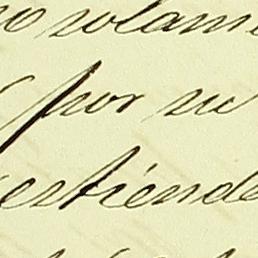 o solam
por su
ertiende